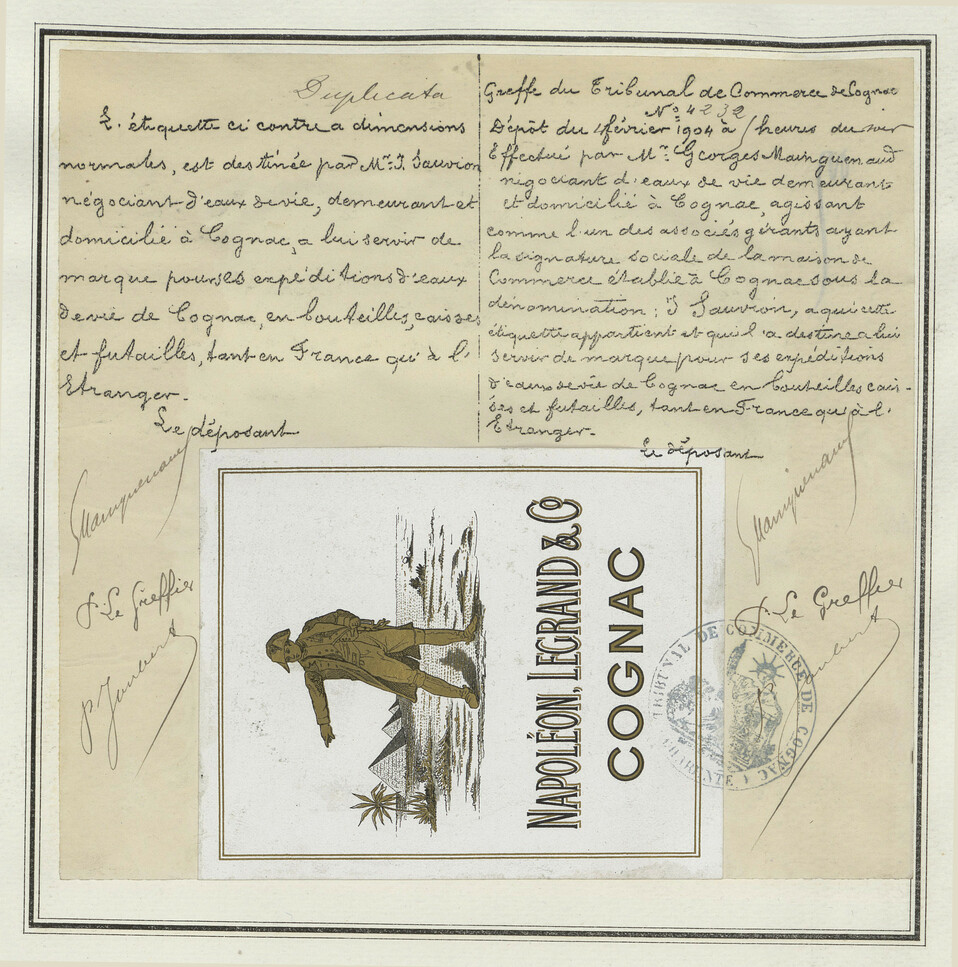 Duplicata
L'étiquette ci contre a dimensions
normales, est destinée par Mr. J. Sauvion
négociant d'eaux de vie, demeurant et
domicilié à Cognac, a lui servir de
marque pour ses expéditions d'eaux
de vie de Cognac, en bouteilles, caisses
et futailles, tant en France qu'à l'
Etranger.
Le déposant
GMainguenaud
P. Le Greffier
p. Joubert
Greffe du Tribunal de Commerce de Cognac
No. 4232
Dépôt du 4 février 1904 à / heures du soir
Effectué par Mr. Georges Mainguenaud
négociant d'eaux de vie demeurant
et domicilié à Cognac, agissant
comme l'un des associés gérants ayant
la signature sociale de la maison de
Commerce établie à Cognac sous la
dénomination : J Sauvion, a qui cette
étiquette appartient et qu'il a destine a lui
servir de marque pour ses expéditions
d'eaux de vie de Cognac en bouteilles cais-
ses et futailles, tant en France qu'à l'
Etranger.
Le déposant
GMainguenaud
P. Le Greffier
Joubert
NAPOLÉON, LEGRAND & Co
COGNAC
TRIBUNAL DE COMMERCE DE COGNAC
CHARENTE